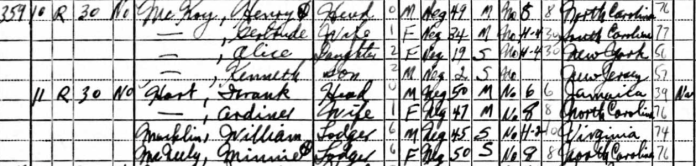 359 10 R 30 No McKoy, Henry Head 0 M Neg 49 M No 8 8 North Carolina 76
—, Gertrude Wife 1 F Neg 34 M No H-4 30 South Carolina 77
—, Alice Daughter 2 F Neg 19 S No H-4 30 New York 56
—, Kenneth Son 2 M Neg 2 S No New Jersey 57
11 R 30 No Hart, Frank Head 0 M Neg 50 M No 6 6 Jamaica 39 Na
—, Ardiner Wife 1 F Neg 47 M No 8 8 North Carolina 76
Macklin, William Lodger 6 M Neg 45 S No H-2 Virginia 74
McNeely, Minnie Lodger 6 F Neg 50 S No 8 8 North Carolina 76